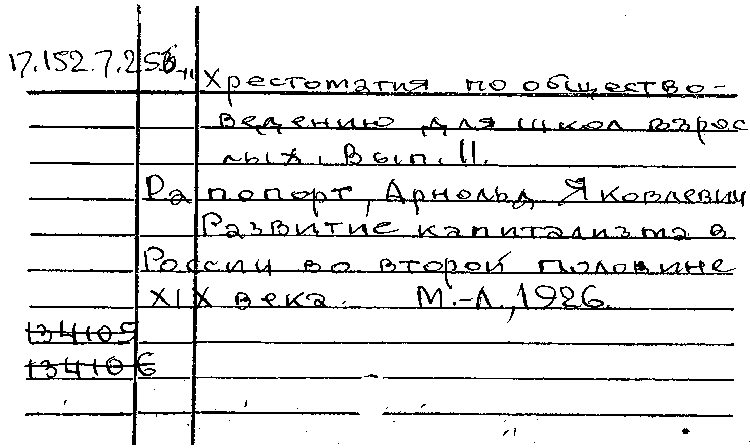 17.152.7.256-11 Хрестоматия по общество-
ведению для школ взрос
лых. Вып. II.
Рапопорт, Арнольд Яковлевич
Развитие капитализма в
России во второй половине
XIX века. М.-Л., 1926.
134105
134106